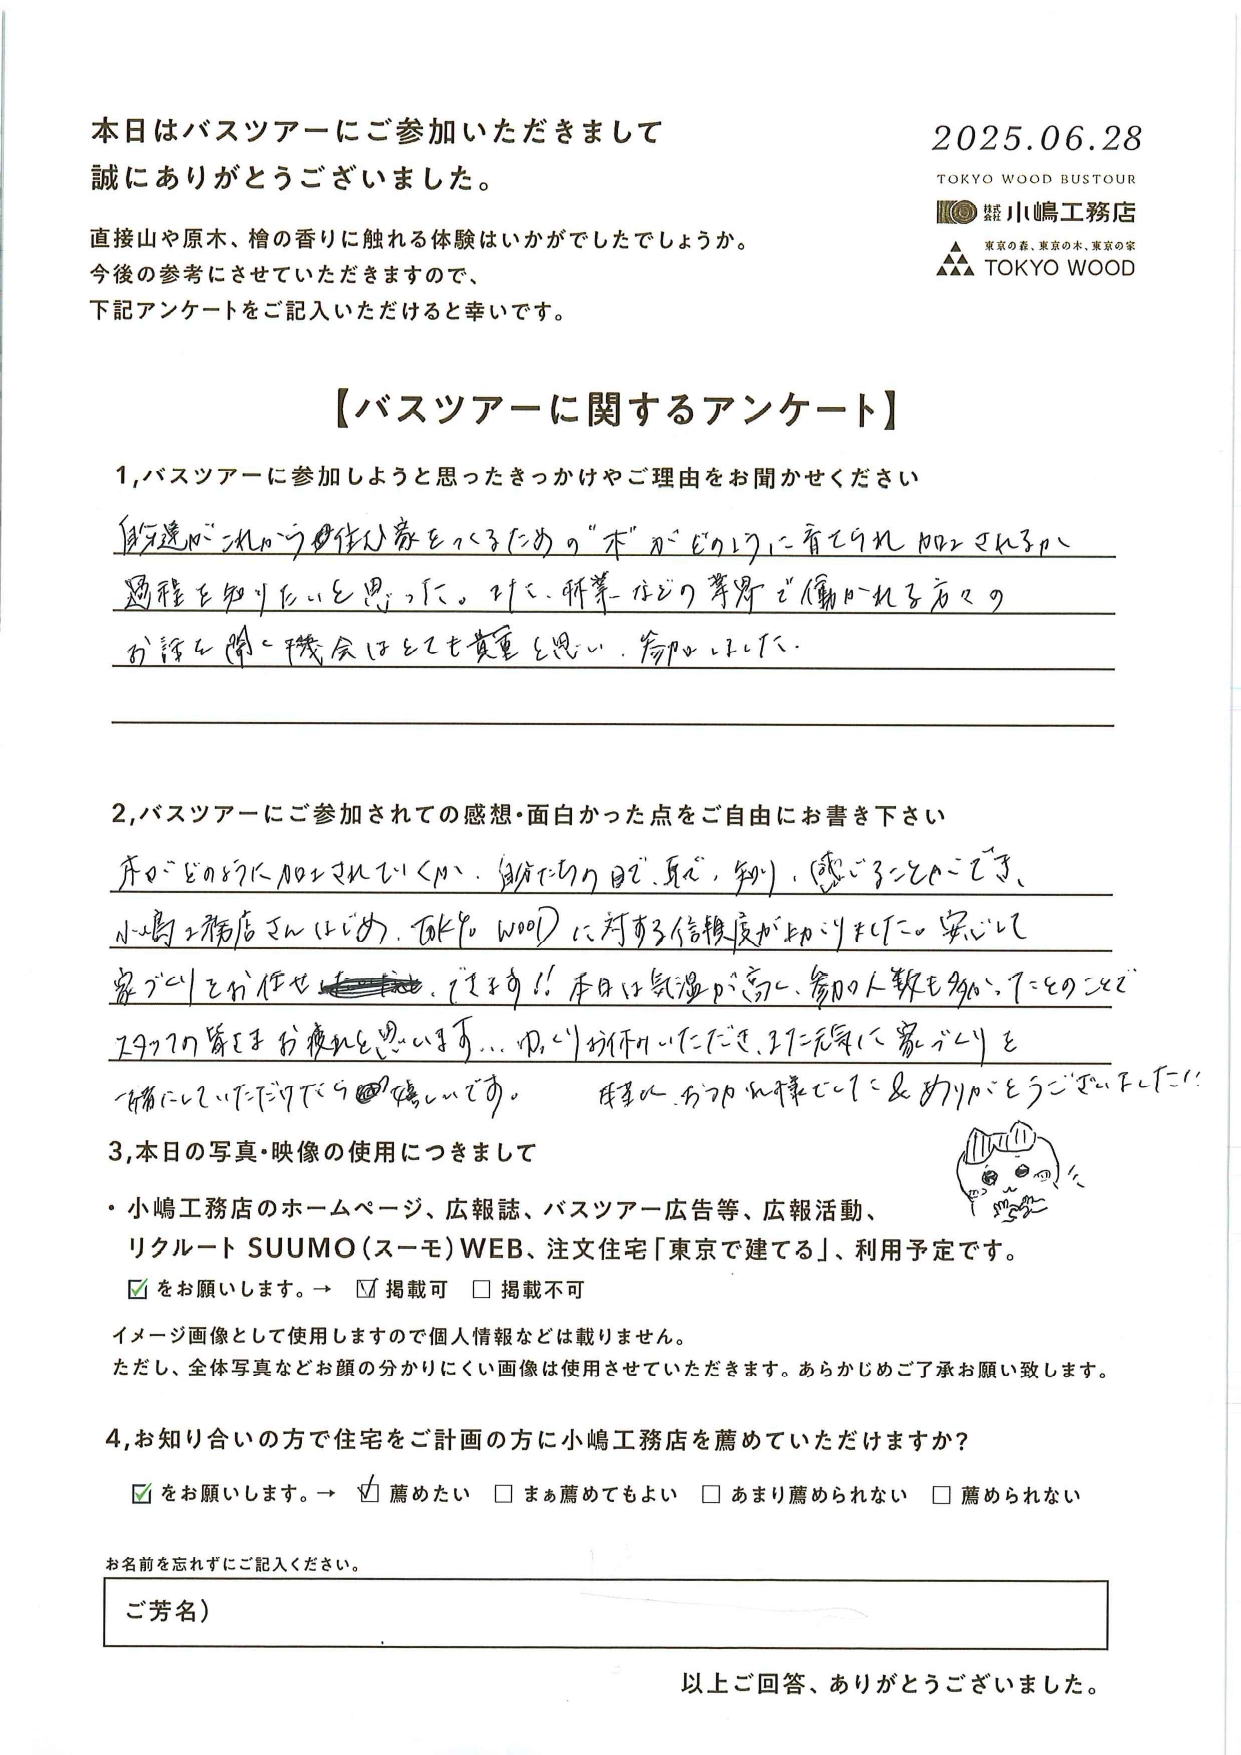 本日はバスツアーにご参加いただきまして
誠にありがとうございました。
2025.06.28
TOKYO WOOD BUSTOUR
株式会社 小嶋工務店
東京の森、東京の木、東京の家
TOKYO WOOD
直接山や原木、檜の香りに触れる体験はいかがでしたでしょうか。
今後の参考にさせていただきますので、
下記アンケートをご記入いただけると幸いです。
【バスツアーに関するアンケート】
1,バスツアーに参加しようと思ったきっかけやご理由をお聞かせください
自分達がこれから住む家をつくるための"木"がどのように育てられ加工されるか
過程を知りたいと思った。また、林業などの業界で働かれる方々の
お話を聞く機会はとても貴重と思い、参加しました。
2,バスツアーにご参加されての感想・面白かった点をご自由にお書き下さい
木がどのように加工されていくか、自分たちの目で、見て、知り、感じることができ、
小嶋工務店さんはじめ、TOKYO WOODに対する信頼度が上がりました。安心して
家づくりをお任せできます!! 本日は気温が高く、参加人数も多かったとのことで
スタッフの皆さまお疲れと思います… ゆっくりお休みいただき、また元気に家づくりを
一緒にしていただけたら嬉しいです。 本当に、おつかれ様でした&ありがとうございました!!
3,本日の写真・映像の使用につきまして
・小嶋工務店のホームページ、広報誌、バスツアー広告等、広報活動、
リクルート SUUMO(スーモ)WEB、注文住宅「東京で建てる」、利用予定です。
☑をお願いします。→ ☑掲載可 □掲載不可
イメージ画像として使用しますので個人情報などは載りません。
ただし、全体写真などお顔の分かりにくい画像は使用させていただきます。あらかじめご了承お願い致します。
4,お知り合いの方で住宅をご計画の方に小嶋工務店を薦めていただけますか?
☑をお願いします。→ ☑薦めたい □まぁ薦めてもよい □あまり薦められない □薦められない
お名前を忘れずにご記入ください。
ご芳名)
以上ご回答、ありがとうございました。